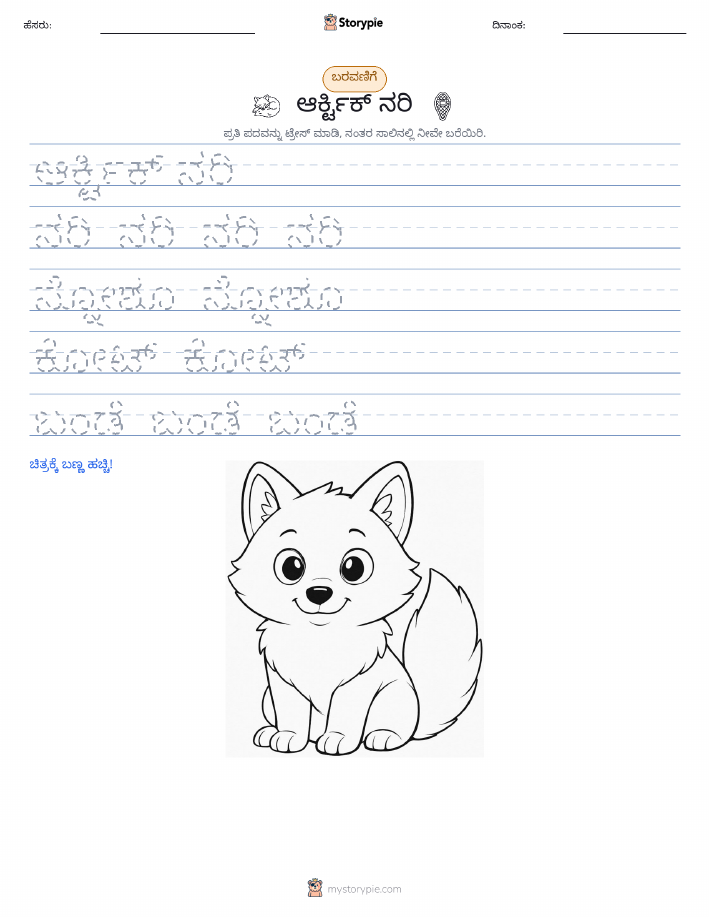 ಹೆಸರು:
Storypie
ದಿನಾಂಕ:
ಬರವಣಿಗೆ
ಆರ್ಕ್ಟಿಕ್ ನರಿ
ಪ್ರತಿ ಪದವನ್ನು ಟ್ರೇಸ್ ಮಾಡಿ, ನಂತರ ಸಾಲಿನಲ್ಲಿ ನೀವೇ ಬರೆಯಿರಿ.
ಆರ್ಕ್ಟಿಕ್ ನರಿ
ನರಿ ನರಿ ನರಿ ನರಿ
ಸ್ನೋಯೂ ಸ್ನೋಯೂ
ಕೋಟ್ ಕೋಟ್
ಬಂಡೆ ಬಂಡೆ ಬಂಡೆ
ಚಿತ್ರಕ್ಕೆ ಬಣ್ಣ ಹಚ್ಚಿ!
mystorypie.com